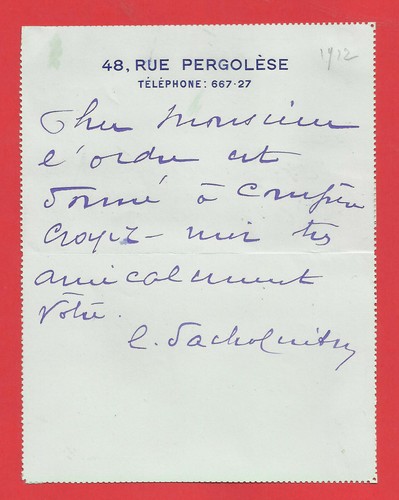 48, RUE PERGOLÈSE
1912
TÉLÉPHONE: 667-27
Cher Monsieur
l'ordre est
donné à
Croyez-moi très
amicalement
Vôtre.